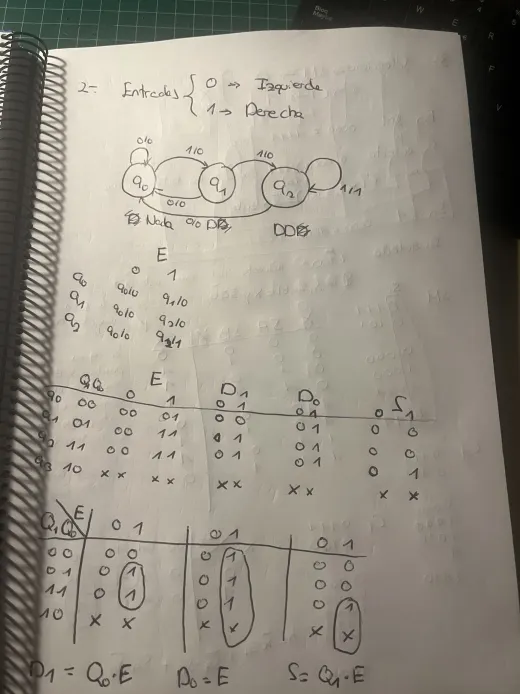 2-
Entradas { 0 → Izquierda
1 → Derecha
0/0 1/0 1/0 1/1
q0 q1 q2
0/0
Nada 0/0 D DD
E
0 1
q0 q0/0 q1/0
q1 q0/0 q2/0
q2 q0/0 q2/1
Q1Q0 E D1 D0 S
0 1 0 1 0 1 0 1
q0 00 00 01 0 0 0 1 0 0
q1 01 00 11 0 1 0 1 0 0
q2 11 00 11 0 1 0 1 0 1
q3 10 x x x x x x x x x x
Q1Q0 E 0 1 0 1 0 1
00 0 0 0 1 0 0
01 0 1 0 1 0 0
11 0 1 0 1 0 1
10 x x x x x x
D1 = Q0·E D0 = E S = Q1·E